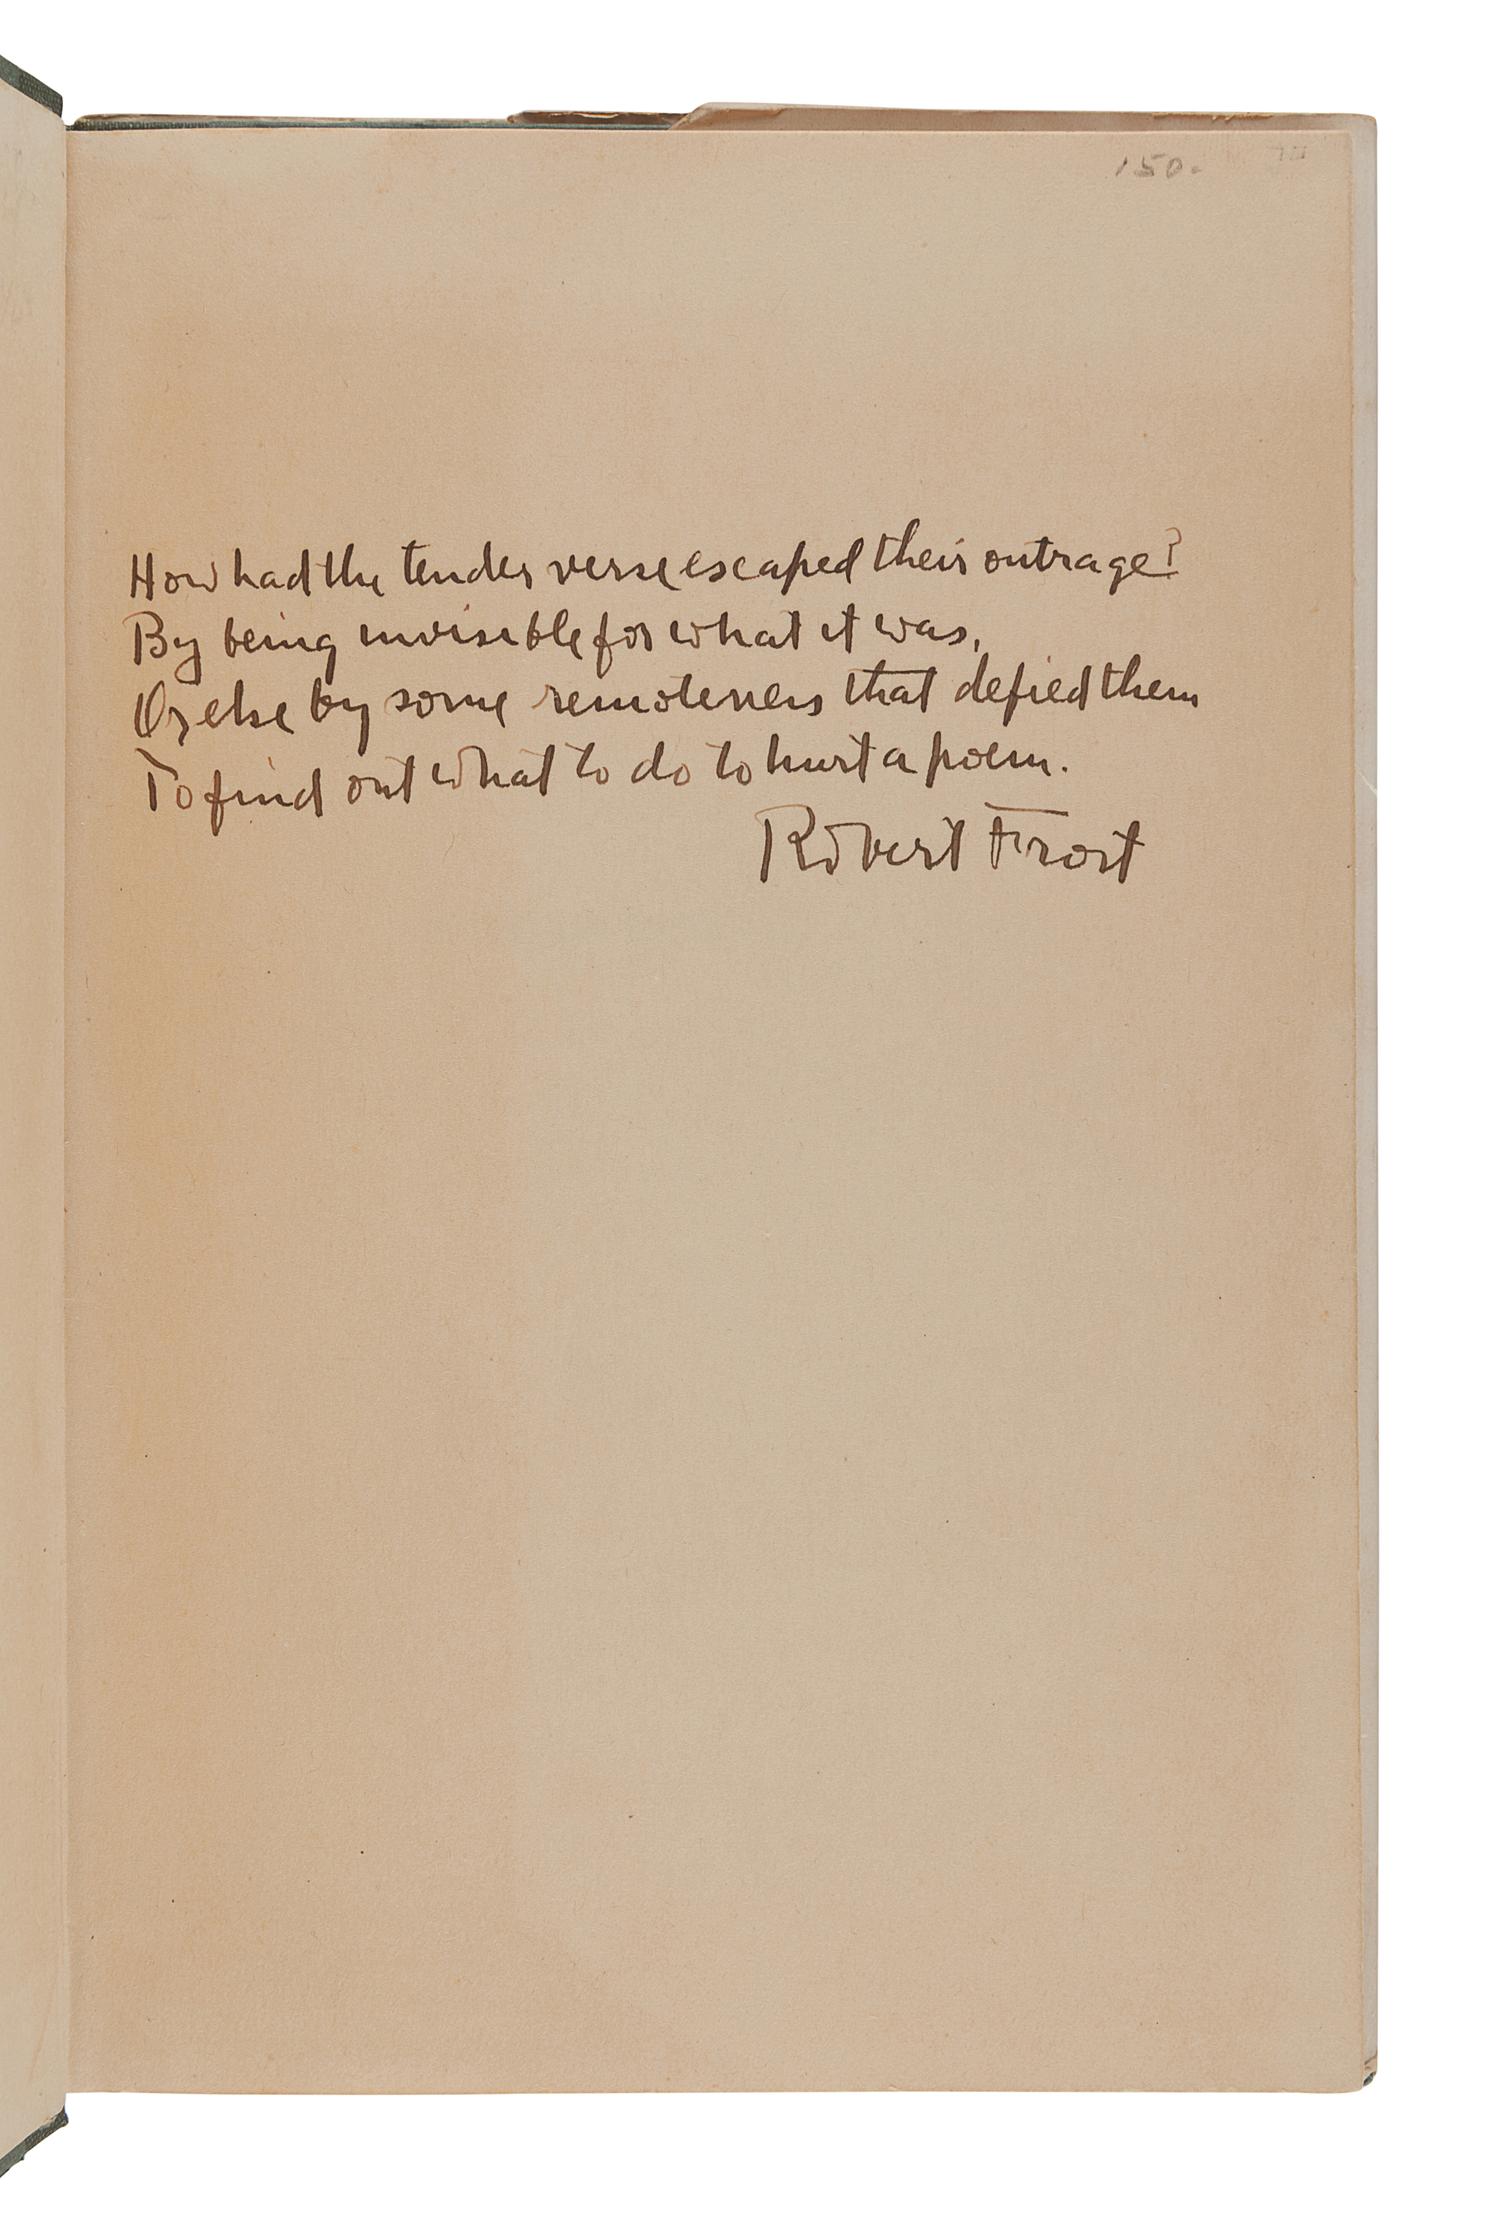 150.
How had the tender verse escaped their outrage?
By being invisible for what it was,
Or else by some remoteness that defied them
To find out what to do to hurt a poem.
Robert Frost